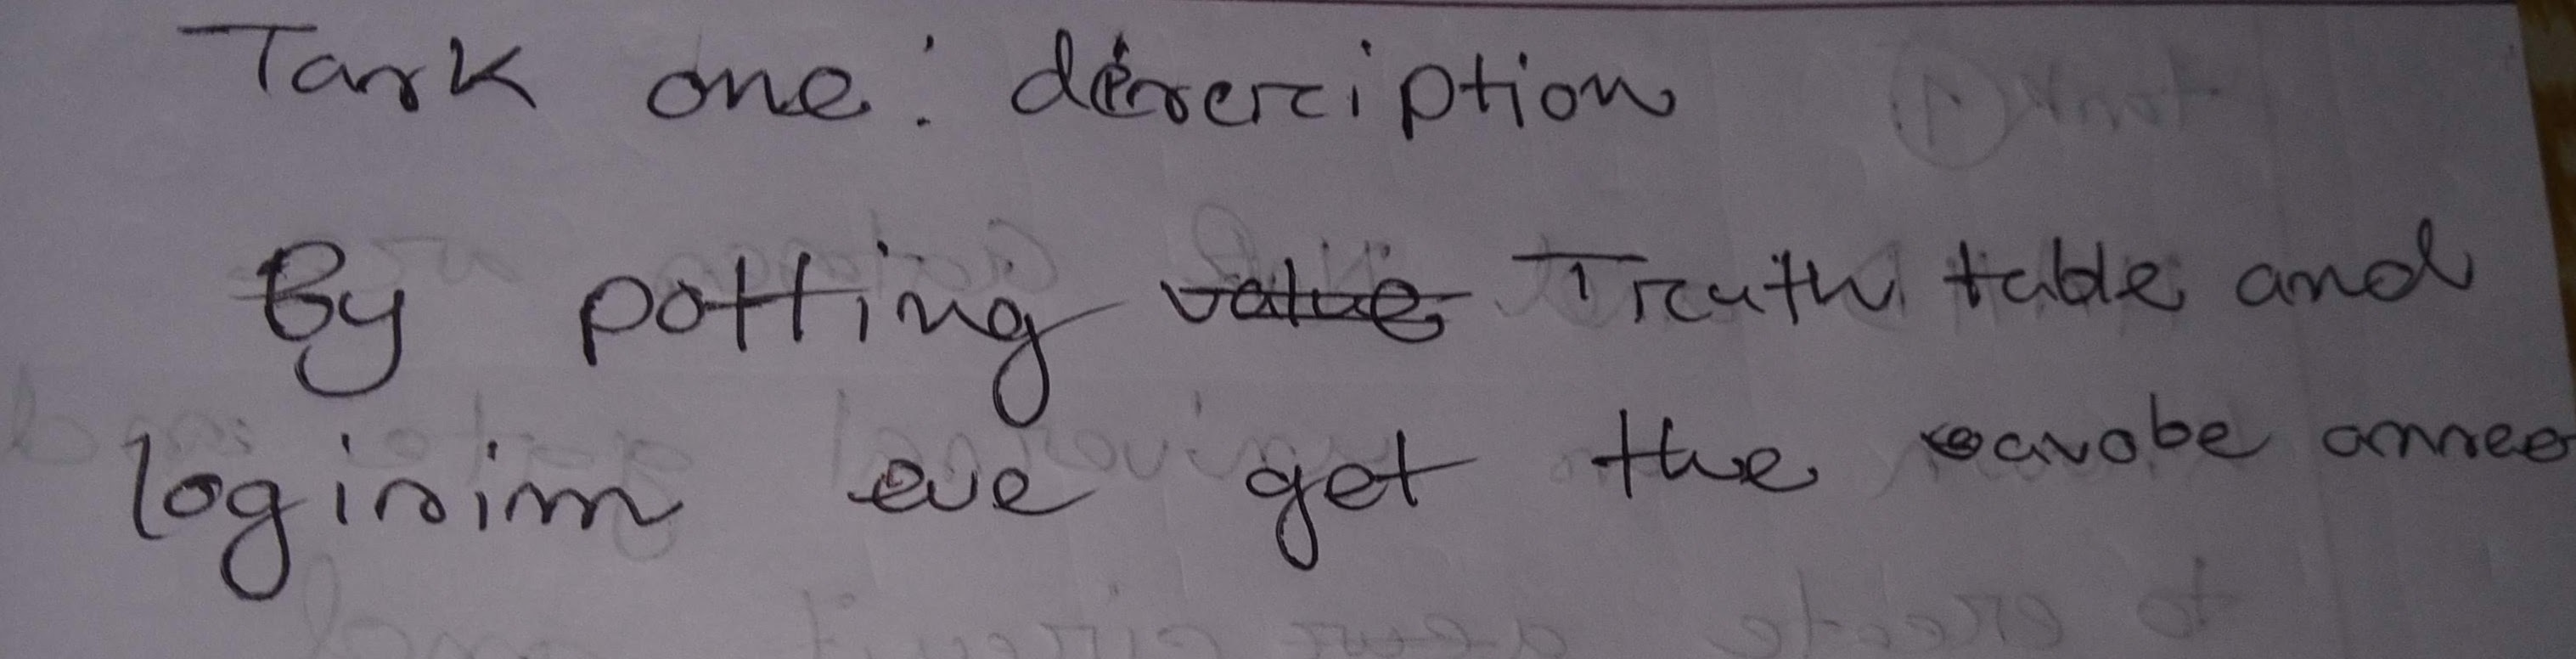 Task one: description
By potting value Truth table and
logisim we get the avobe